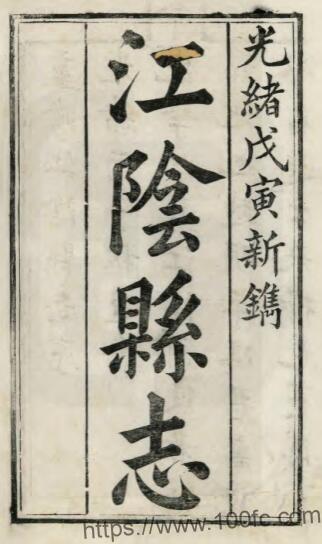 光緒戊寅新鐫
江陰縣志
https://www.100fc.com